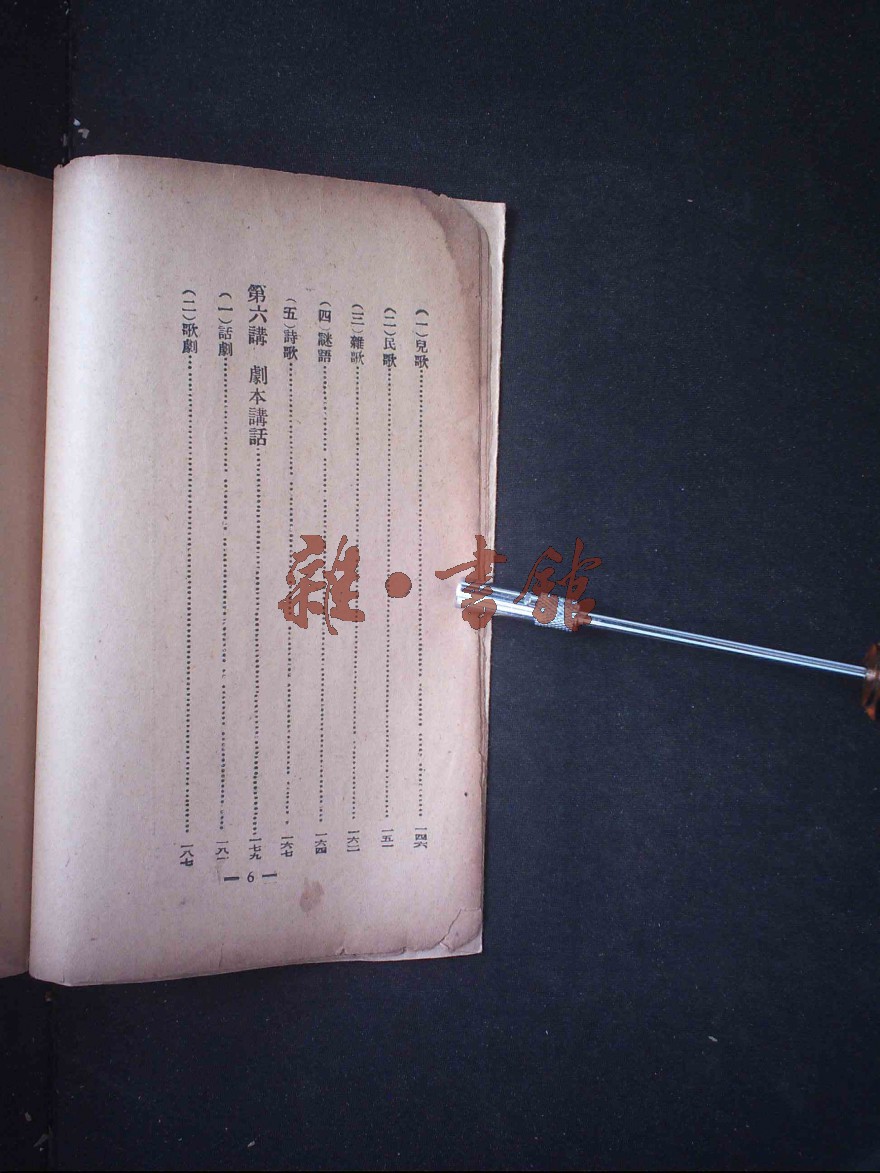 (一)兒歌……一四六
(二)民歌……一五一
(三)雜歌……一六二
(四)謎語……一六四
(五)詩歌……一六七
第六講 劇本講話……一七九
(一)話劇……一八一
(二)歌劇……一八七
6
雜·書館